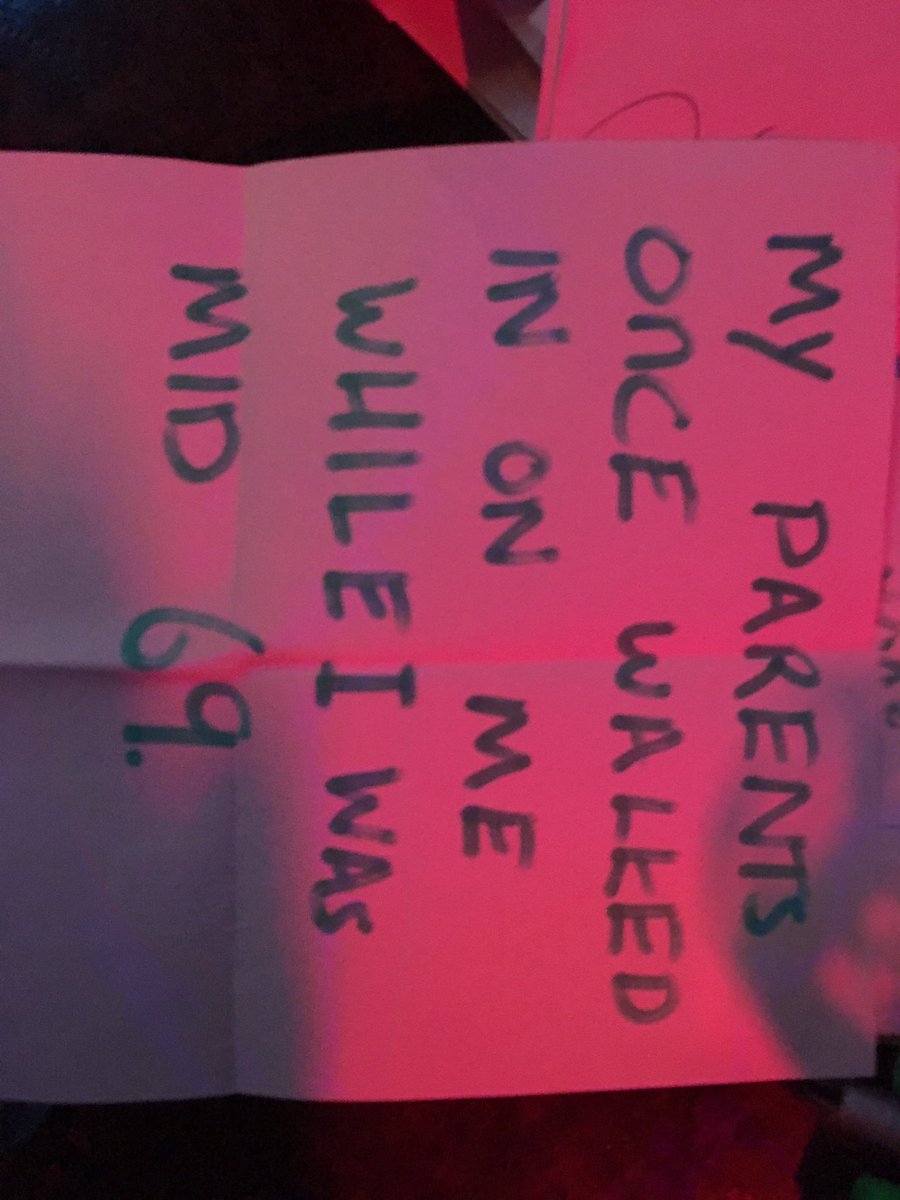 MY PARENTS
ONCE WALKED
IN ON ME
WHILE I WAS
MID 69.